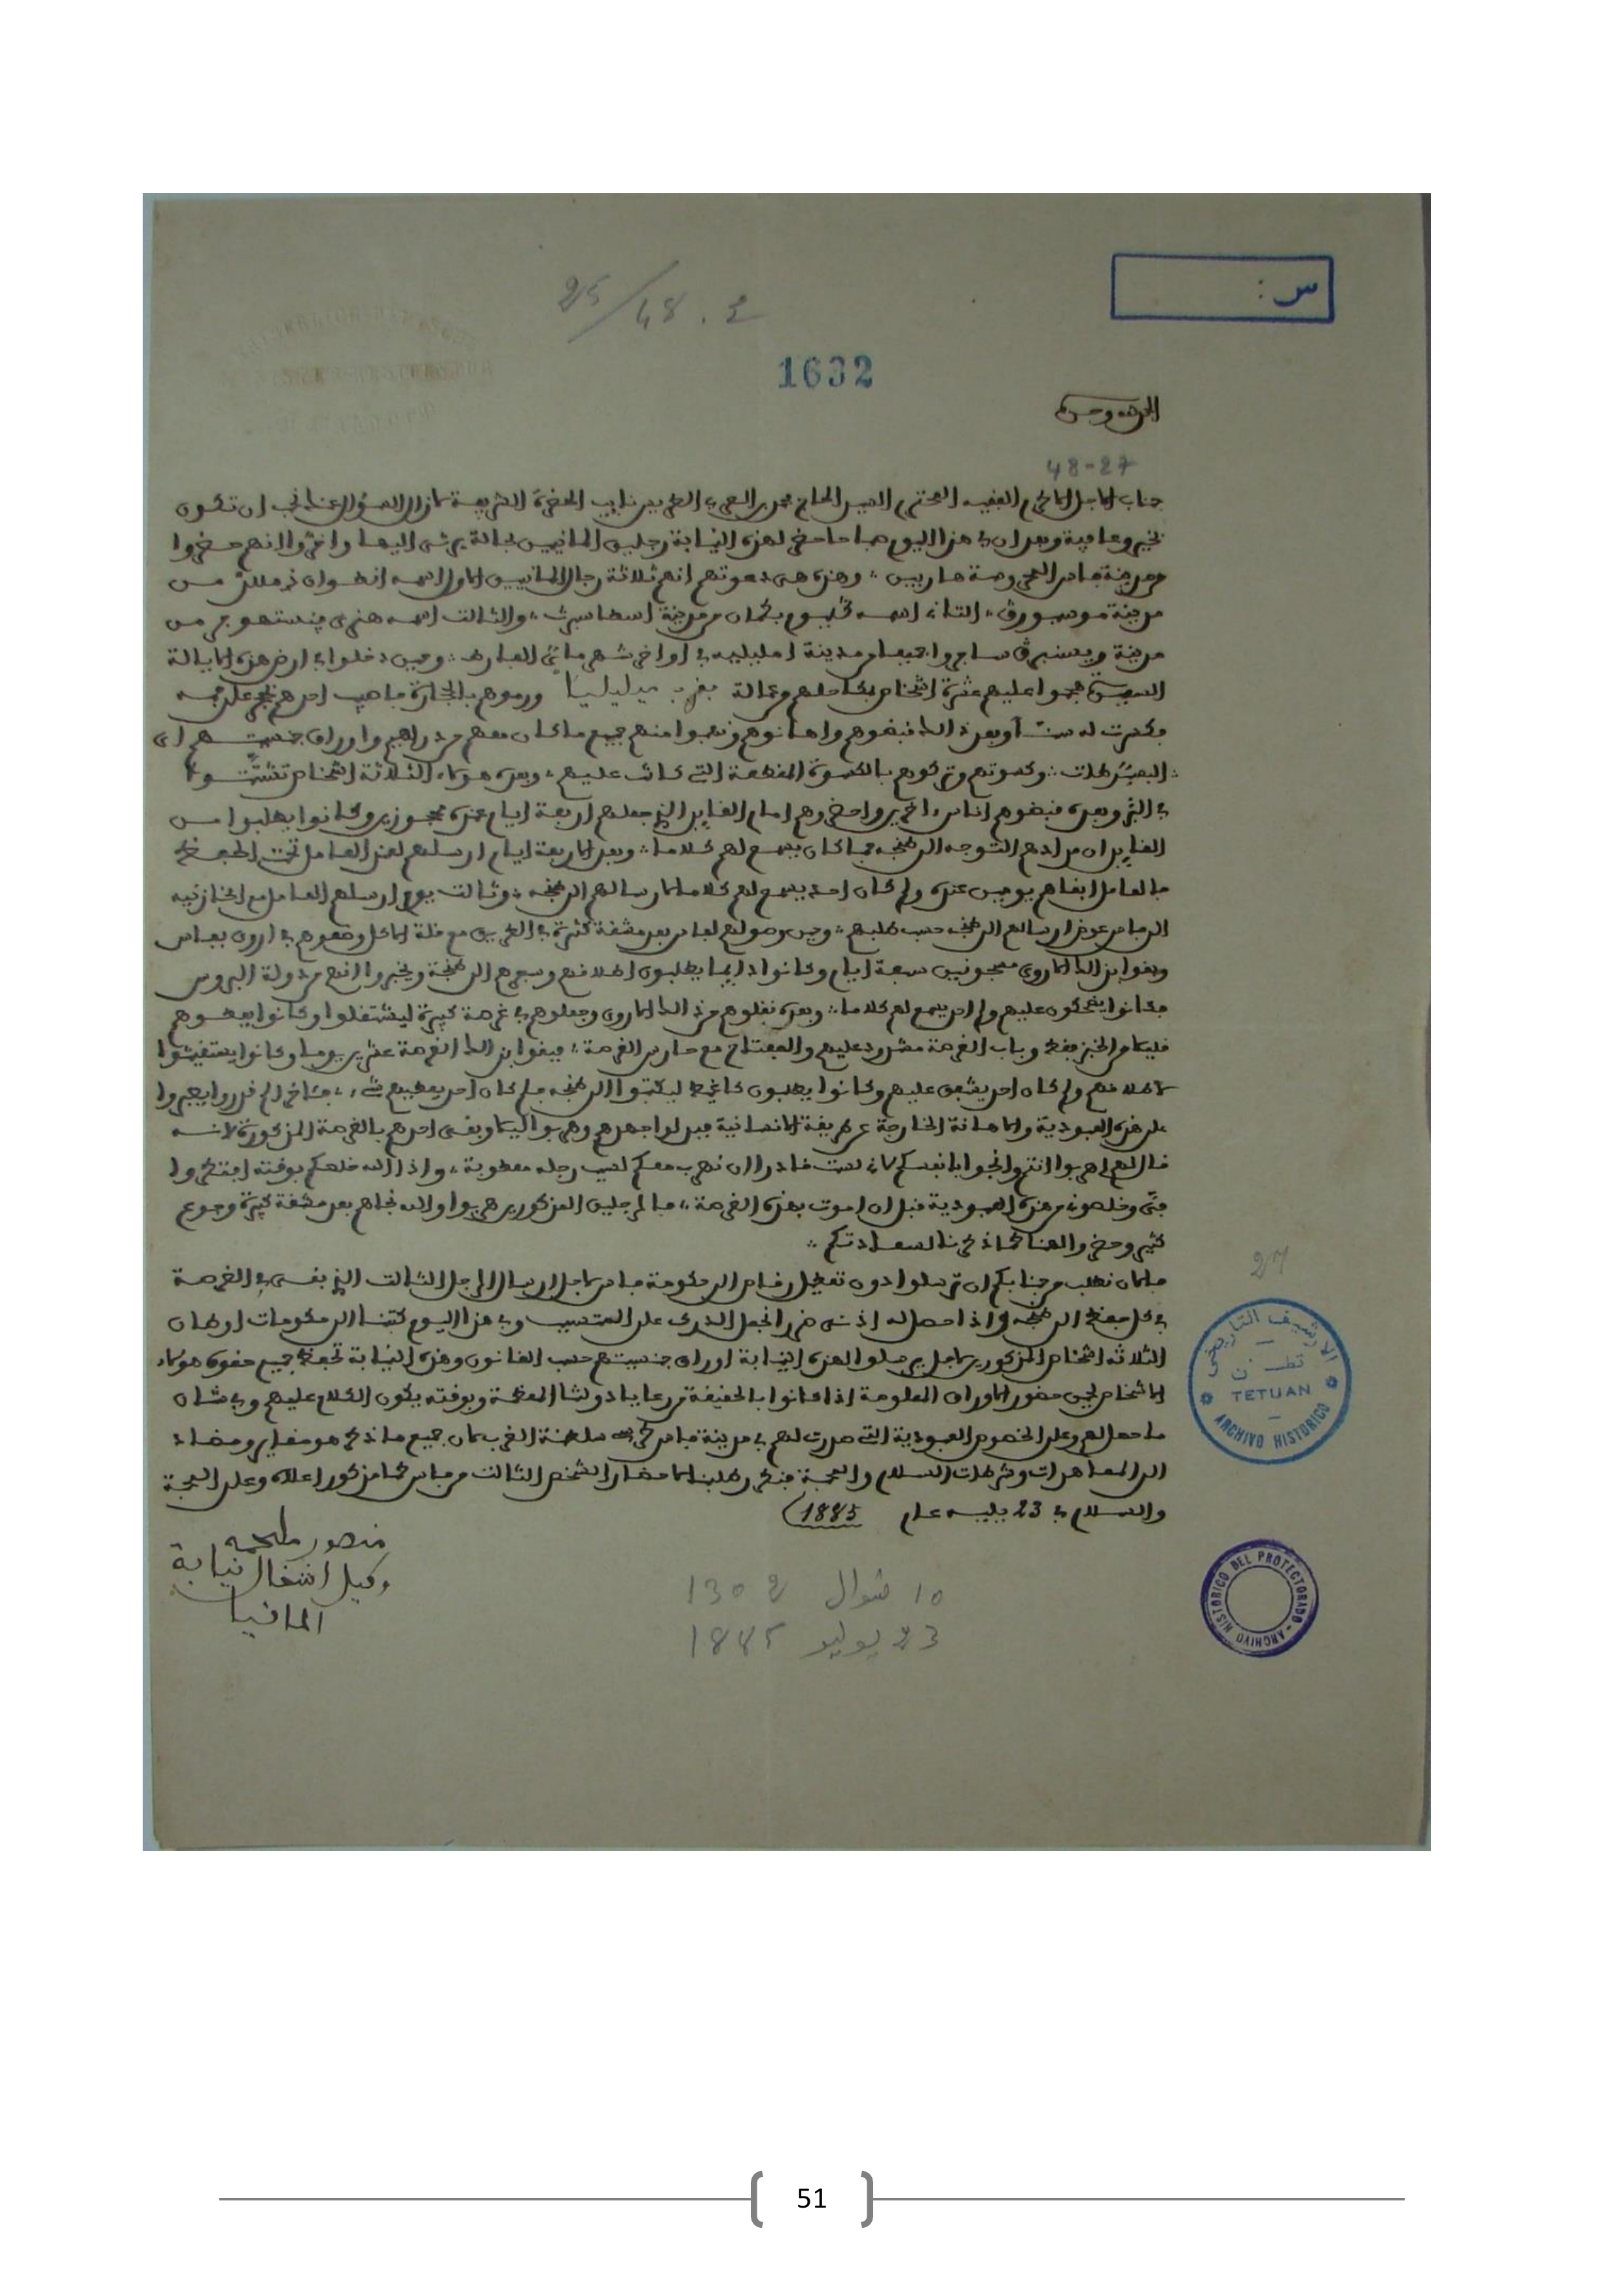 س :
25/48.2
1632
الحمد لله وحده
48-27
جناب الاجل الاكرم الفقيه المحترم السيد الحاج محمد بن العربي الطريس نايب الحضرة الشريفة لازال السؤال عنك نحب ان تكون
بخير وعافية وبعد ان في هذا اليوم صباحا حضر لهذه النيابة رجلين المانيين بحالة يرثى اليها واخبروا انهم حضروا
من مدينة فاس المحروسة هاربين وهذه هي دعوتهم انهم ثلاثة رجال المانيين الاول اسمه انطوان من
مدينة الثاني اسمه من مدينة والثالث اسمه هنري من
مدينة سافروا جميعا من مدينة امليلية في اواخر شهر ماي الفارط وحين دخلوا في ارض هذه الايالة
السعيدة هجموا عليهم عشرة اشخاص بقرب ميليليا ورموهم بالحجارة فاصيب احدهم بحجر على فمه
فكسرت له سنا وبعد ذالك قبضوهم واهانوهم ونهبوا منهم جميع ما كان معهم من دراهم واوراق جنسيتهم اي
البصبرطات وكسوتهم وتركوهم بالكسوة المقطعة التي كانت عليهم وبعده هؤلاء الثلاثة اشخاص تشتتوا
وبعده قبضوهم اناس اخرين واحضروهم امام القايد الذي جعلهم اربعة ايام عنده محجوزين وكانوا يطلبوا من
القايد ان مرادهم التوجه الى طنجة فما كان يسمع لهم كلاما وبعد الاربعة ايام ارسلهم لعند العامل تحت الحفظ
فالعامل ابقاهم يومين عنده ولم كان احد يسمع لهم كلاما لارسالهم الى طنجة وثالث يوم ارسلهم العامل مع المخازنية
الى فاس عوض ارسالهم الى طنجة حسب طلبهم وحين وصولهم لفاس بعد مشقة كثيرة في الطريق مع قلة الاكل وضعوهم في اروى بفاس
وبقوا بذالك الاروى مسجونين سبعة ايام وكانوا دايما يطلبون اطلاقهم وسيرهم الى طنجة ويخبروا انهم من دولة البروس
فكانوا يضحكون عليهم ولم احد يسمع لهم كلاما وبعده نقلوهم من ذالك الاروى وجعلوهم في غرصة كبيرة ليشتغلوا وكانوا يعطوهم
قليلا من الخبز فقط وباب الغرصة مشدود عليهم والمفتاح مع حارس الغرصة فبقوا بذالك الغرصة عشرين يوما وكانوا يستغيثوا
لاطلاقهم ولم كان احد يشفق عليهم وكانوا يطلبون كاغيط ليكتبوا الى طنجة فلم كان احد يعطيهم شيء
على هذه العبودية والاهانة الخارجة عن طريقة الانسانية وهربوا ليلا وبقى احدهم بالغرصة المذكورة لانه
قال لهم اهربوا انتم وانجوا بانفسكم لاني لست قادرا ان نهرب معكم لسبب رجله معطوبة واذا الله خلصكم بوقته افتكروا
فيّ وخلصوني من هذه العبودية قبل ان اموت بهذه الغرصة فالرجلين المذكورين هربوا والله نجاهم بعد مشقة كبيرة وجوع
كثير وحضروا لهنا كما ذكرنا لسعادتكم
فالان نطلب من جنابكم ان ترسلوا دون تعطيل رقاص الى حكومة فاس لاجل ارسال الرجل الثالث الذي بقى في الغرصة
بكل حفظ الى طنجة واذا حصل له ادنى ضرر نجعل الدرك على المتسبب وفي هذا اليوم كتبنا الى حكومات اوطان
الثلاثة اشخاص المذكورين لاجل يرسلوا لهذه النيابة اوراق جنسيتهم حسب القانون وهذه النيابة تحفظ جميع حقوق هؤلاء
الاشخاص لحين حضور الاوراق المعلومة اذا كانوا بالحقيقة من رعايا دولتنا المعظمة وبوقته يكون الكلام عليهم وفي شان
ما حصل لهم وعلى الخصوص العبودية التي صدرت لهم في مدينة فاس كرسي سلطنة الغرب لان جميع ما ذكر هو مغاير ومضاد
الى المعاهدات وشرطات السلام والمحبة فنكرر طلبنا احضار الشخص الثالث من فاس كما مذكور اعلاه وعلى المحبة
والسلام في 23 يليه عام 1885
منصور ملحمه
وكيل اشغال نيابة
المانيا
10 شوال 1302
23 يوليو 1885
27
الارشيف التاريخي
تطـــــن
TETUAN
ARCHIVO HISTORICO
ARCHIVO HISTORICO DEL PROTECTORADO
51